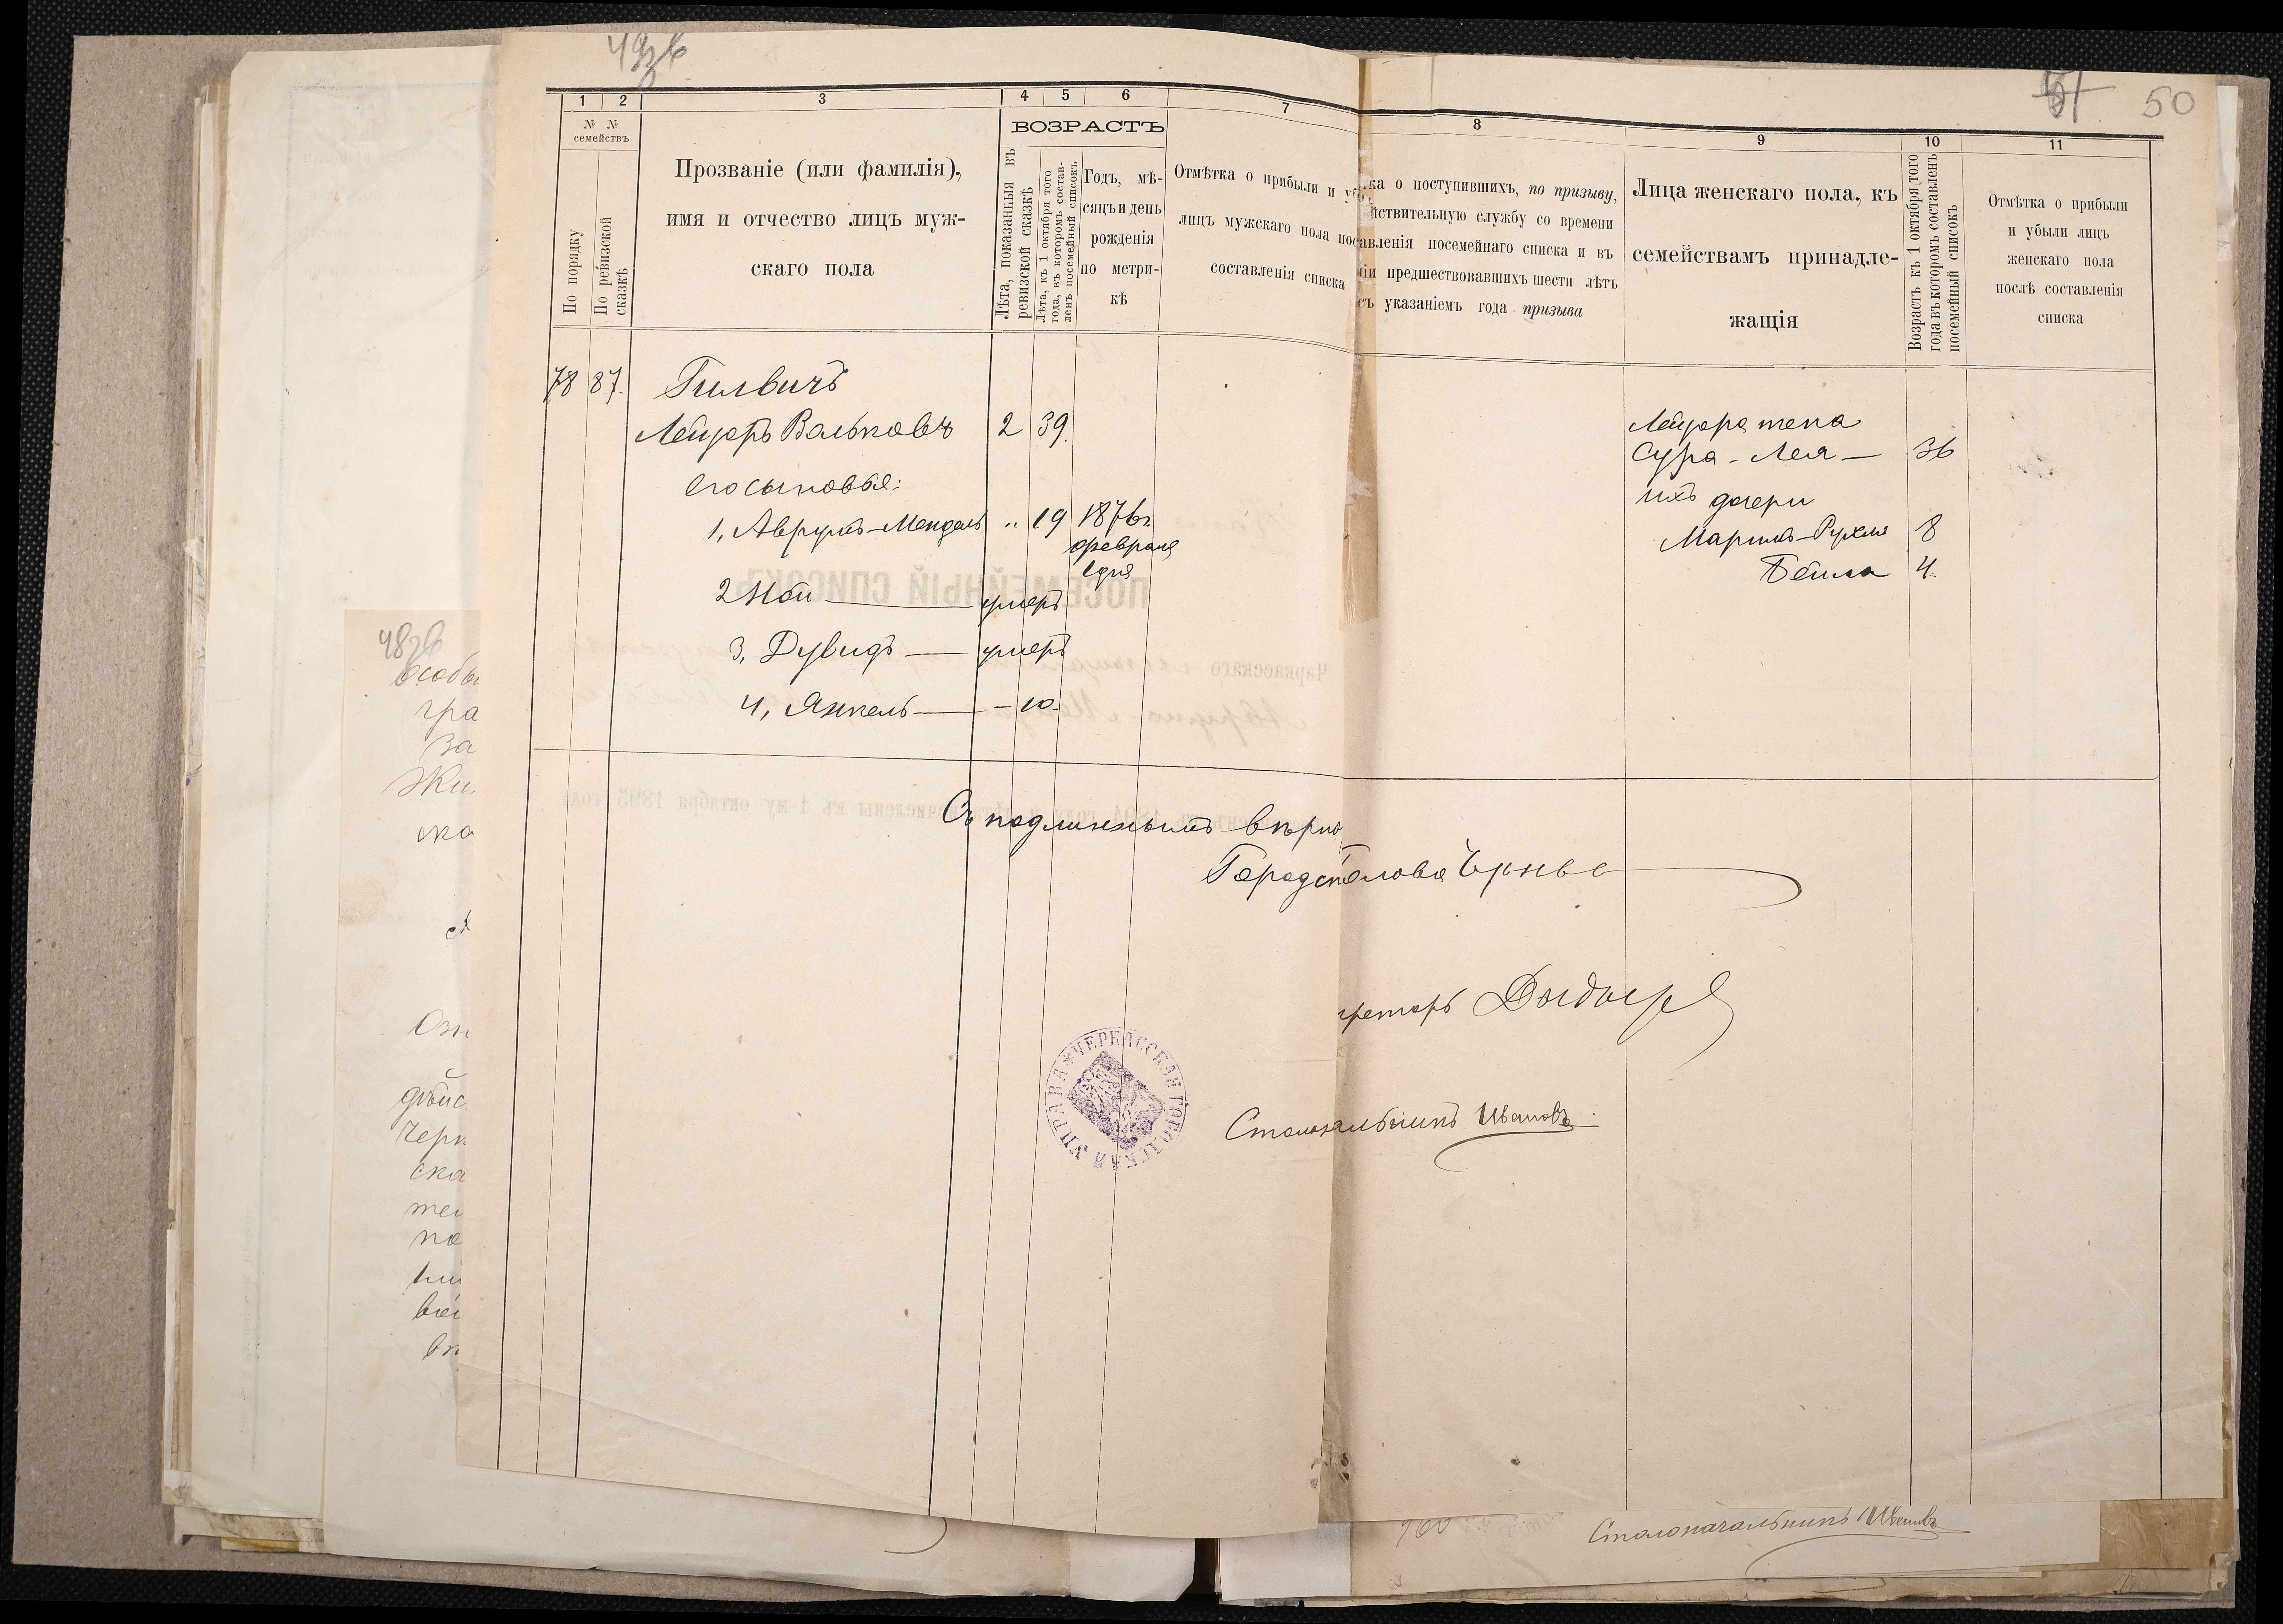 49зв
51 50
1 2 3 4 5 6 7 8 9 10 11
№ №
семействъ
По порядку
По ревизской
сказкѣ
Прозваніе (или фамилія),
имя и отчество лицъ муж-
скаго пола
ВОЗРАСТЪ
Лѣта, показанныя въ
ревизской сказкѣ
Лѣта, къ 1 октября того
года, въ которомъ состав-
ленъ посемейный списокъ
Годъ, мѣ-
сяцъ и день
рожденія
по метри-
кѣ
Отмѣтка о прибыли и уб
лицъ мужскаго пола пос
составленія списка
ка о поступившихъ, по призыву,
йствительную службу со времени
авленія посемейнаго списка и въ
ніи предшествовавшихъ шести лѣтъ
съ указаніемъ года призыва
Лица женскаго пола, къ
семействамъ принадле-
жащія
Возрастъ къ 1 октября того
года въ которомъ составленъ
посемейный списокъ
Отмѣтка о прибыли
и убыли лицъ
женскаго пола
послѣ составленія
списка
78 87. Гилвичъ
Лейзоръ Вольковъ 2 39.
его сыновья:
1, Аврумъ-Мендель „ 19 1876г.
февраля
1 дня
2 Ной — умеръ
3, Дувидъ — умеръ
4, Янкель — – 10
Лейзора жена
Сура-Лея — 36
ихъ дочери
Марьимъ-Рухля 8
Бейла 4.
Съ подлиннымъ вѣрно
Городской Голова
кретарь
Столоначальникъ Ивановъ
ЧЕРКАССКАЯ ГОРОДСКАЯ УПРАВА
48зв
особы
гра
за
Жи
ска
дѣйс
Черк
ска
Столоначальникъ Ивановъ